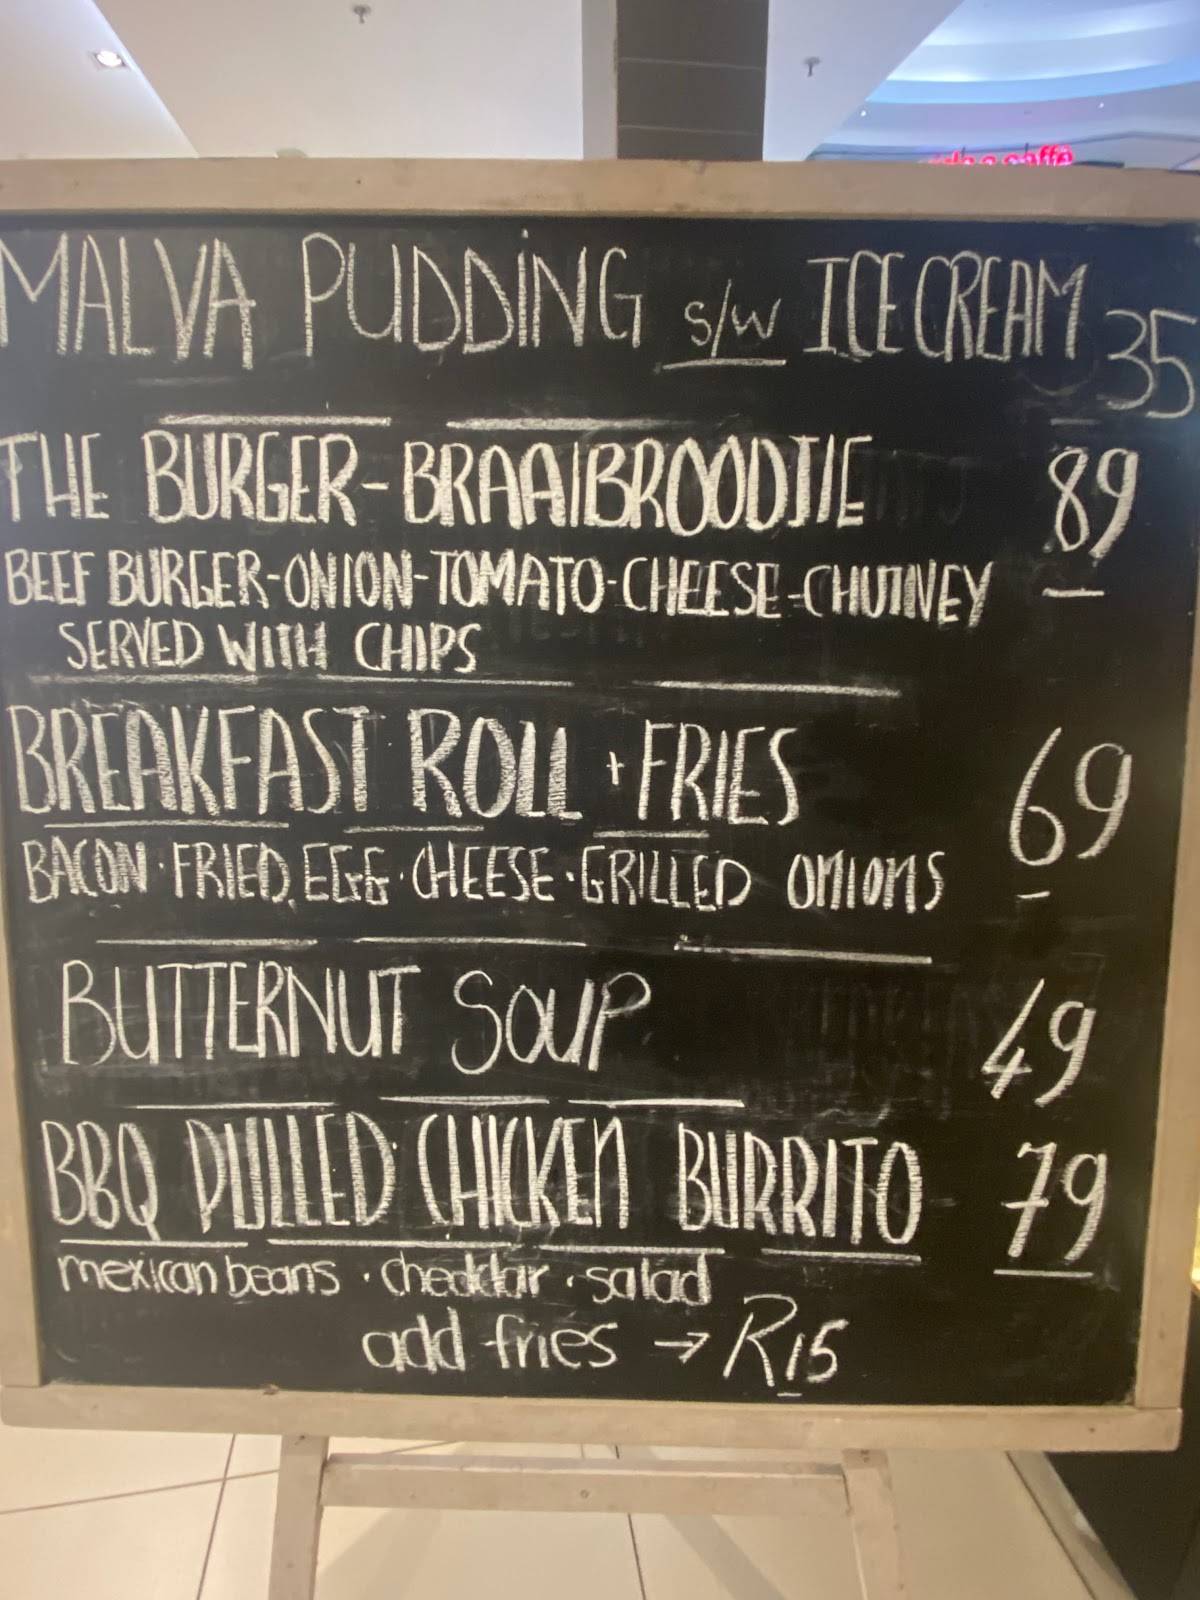 caffè
MALVA PUDDING s/w ICE CREAM 35
THE BURGER-BRAAIBROODJIE 89
BEEF BURGER-ONION-TOMATO-CHEESE-CHUTNEY
SERVED WITH CHIPS
BREAKFAST ROLL + FRIES 69
BACON · FRIED EGG · CHEESE · GRILLED ONIONS
BUTTERNUT SOUP 49
BBQ PULLED CHICKEN BURRITO 79
mexican beans · cheddar · salad
add fries → R15